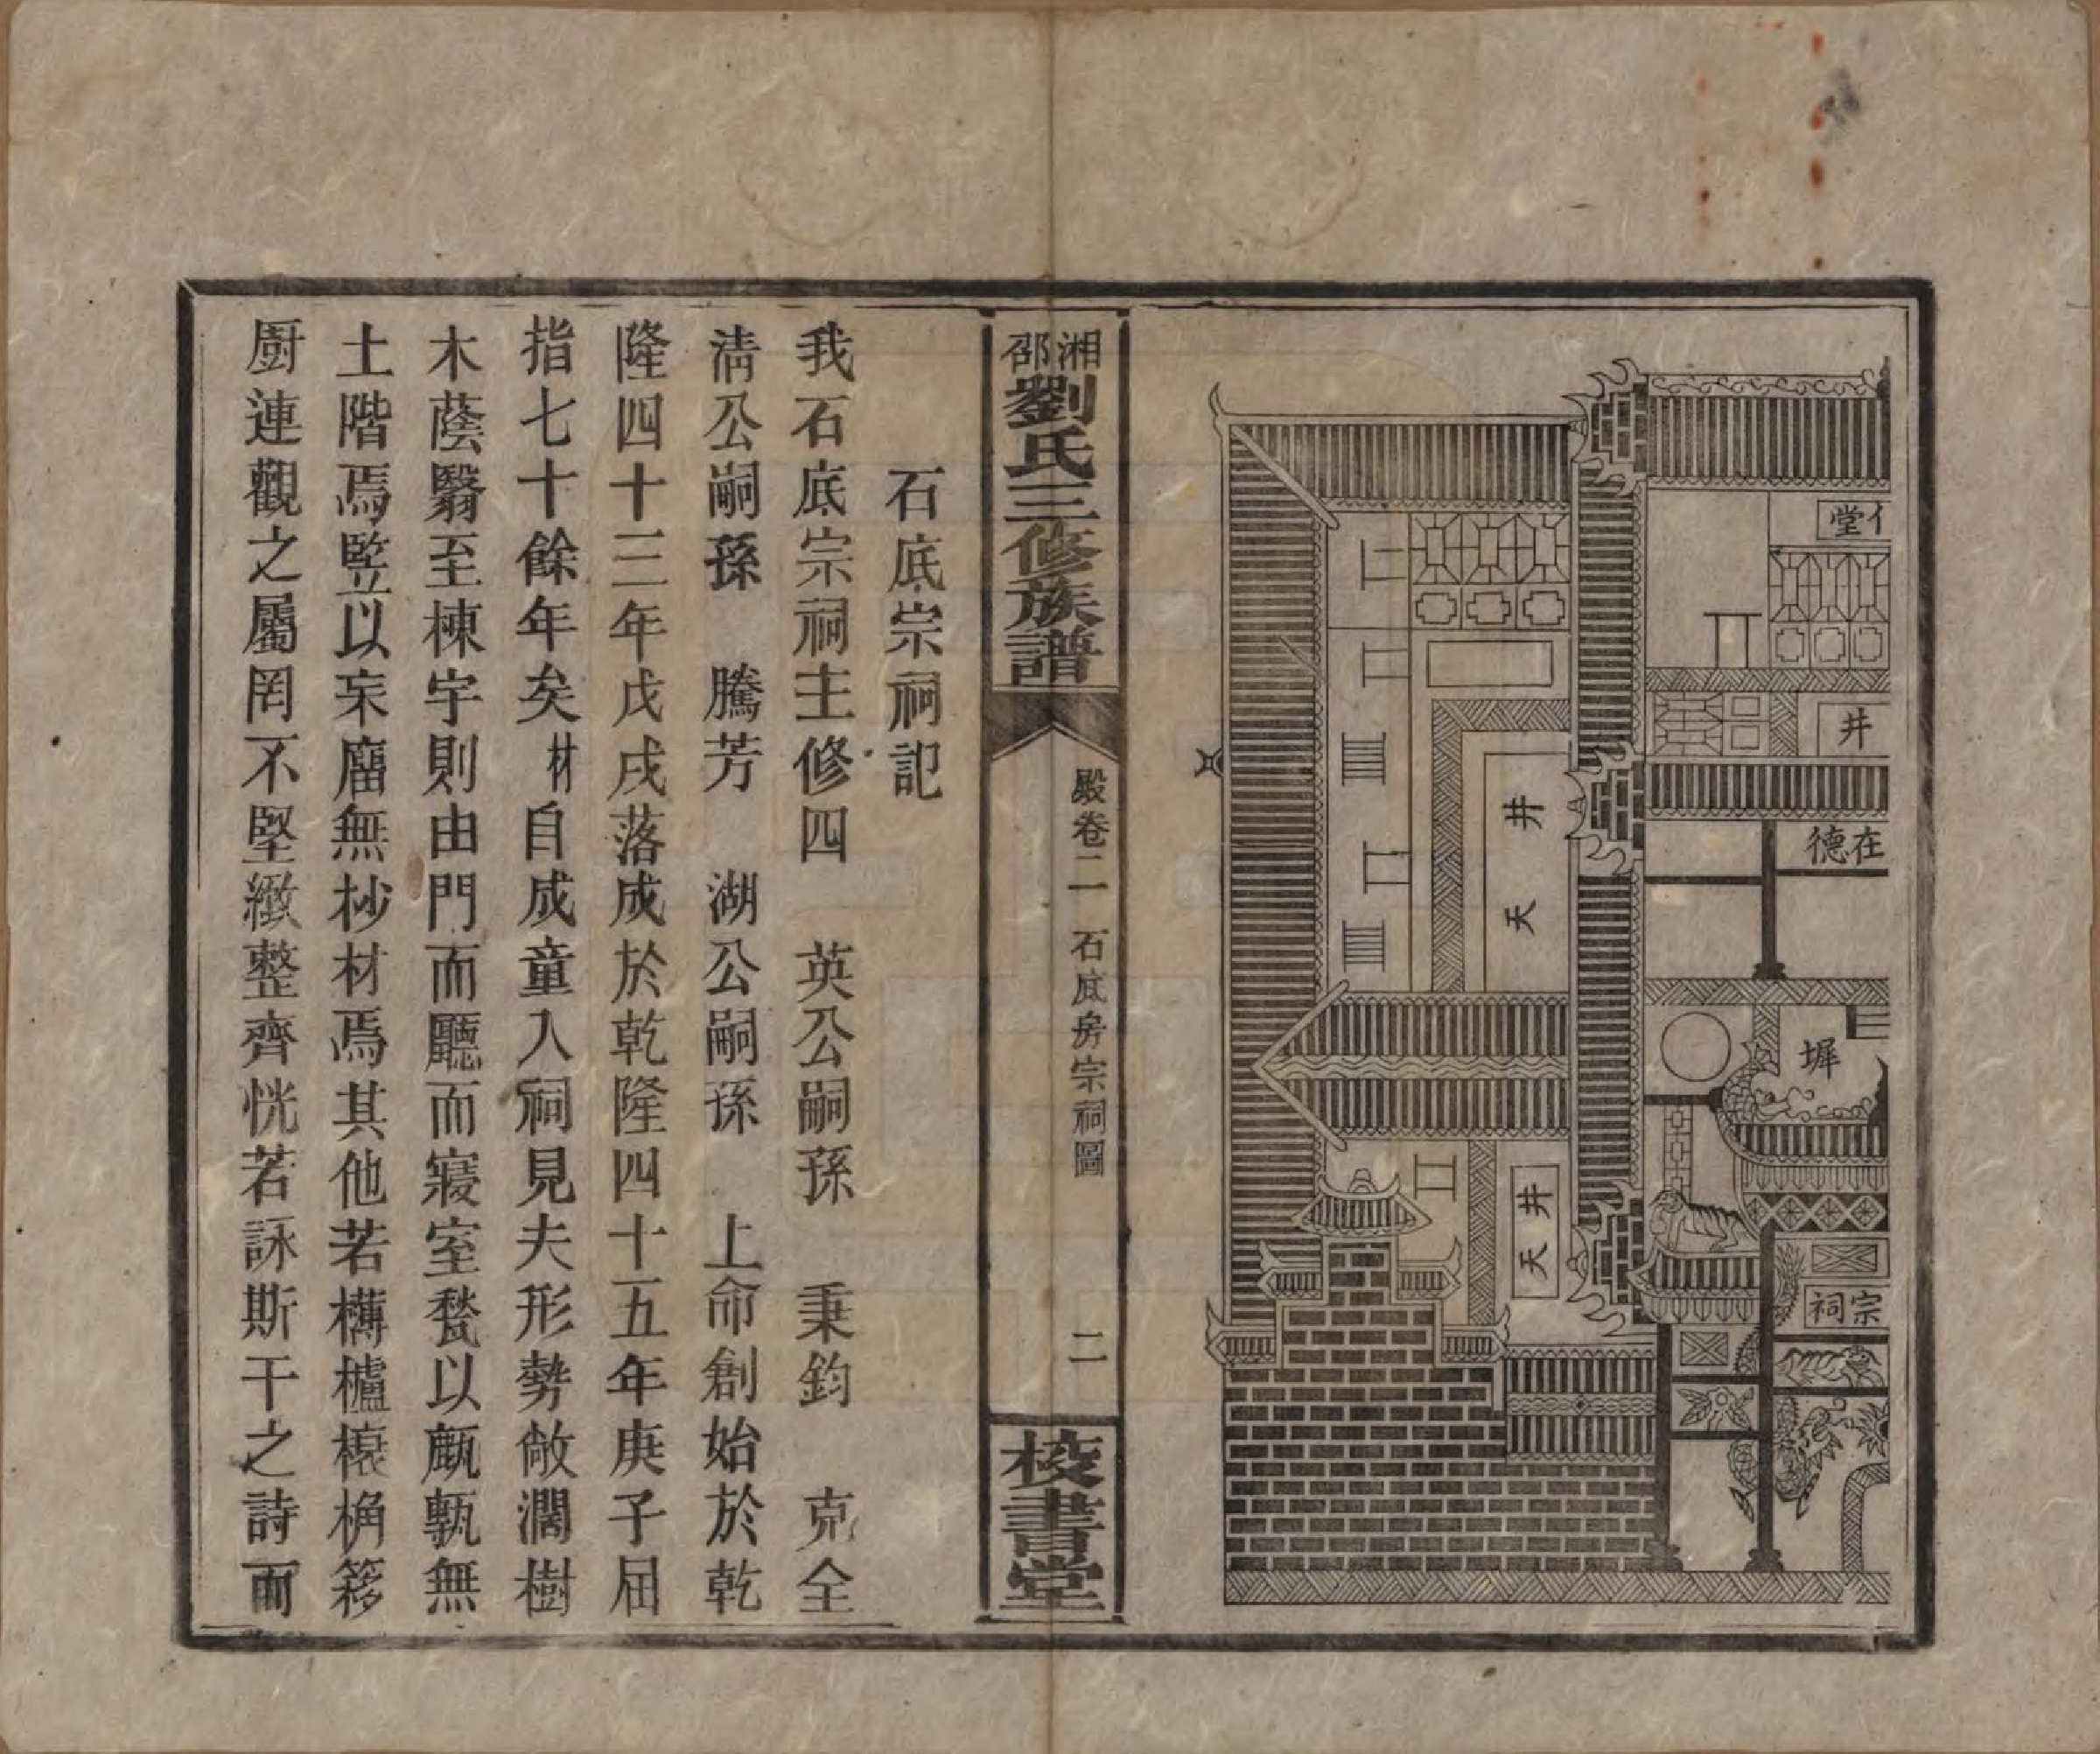 堂
井
在德
墀
宗祠
天井
天井
湘邵劉氏三修族譜
殿卷二 石底房宗祠圖
二
校書堂
石底宗祠記
我石底宗祠主修四 英公嗣孫 秉鈞 克全
淸公嗣孫 騰芳 湖公嗣孫 上命創始於乾
隆四十三年戊戌落成於乾隆四十五年庚子屈
指七十餘年矣材自成童入祠見夫形勢敞濶樹
木蔭翳至棟宇則由門而廳而寢室甃以甋甎無
土階焉竪以宋廇無杪材焉其他若欂櫨榱桷簃
廚連觀之屬罔不堅緻整齊恍若詠斯干之詩而